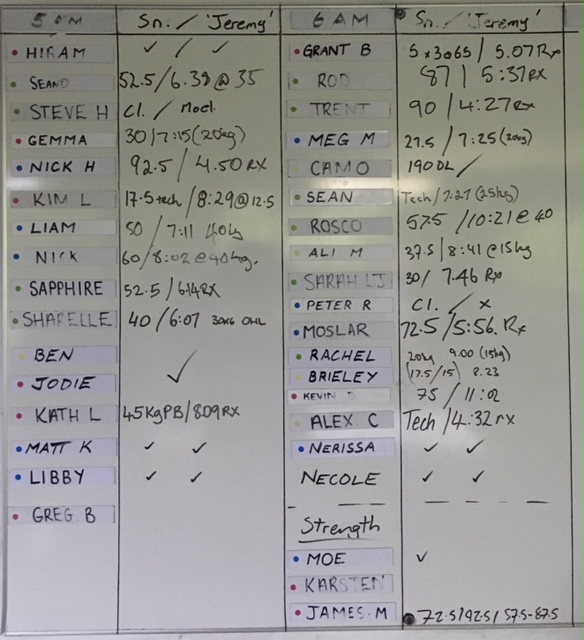 5 AM Sn. / 'Jeremy'
HIRAM ✓ / ✓
SEAND 52.5/6.38@35
STEVE H Cl. / Mod.
GEMMA 30/7:15(20kg)
NICK H 92.5 / 4.50 RX
KIM L 17.5 tech / 8:29@12.5
LIAM 50 / 7:11 40kg
NICK 60/8:02@40kg.
SAPPHIRE 52.5 / 6:14RX
SHARELLE 40 / 6:07 30kg OHL
BEN
JODIE ✓
KATH L 45KgPB/809RX
MATT K ✓ ✓
LIBBY ✓ ✓
GREG B
6 AM Sn. / 'Jeremy'
GRANT B 5x3@65 / 5.07Rx
ROD 87 | 5:37RX
TRENT 90 / 4:27RX
MEG M 27.5 / 7:25 (20kg)
CAMO 190DL ✓
SEAN Tech / 7:27 (25kg)
ROSCO 57.5 / 10:21 @ 40
ALI M 37.5 / 8:41@15kg
SARAH LJ 30 / 7.46 Rx
PETER R Cl. / x
MOSLAR 72.5 / 5:56. Rx
RACHEL 20kg 9.00 (15kg)
BRIELEY (17.5/15) 8.23
KEVIN 75 / 11:02
ALEX C Tech / 4:32 rx
NERISSA ✓ ✓
NECOLE ✓ ✓
Strength
MOE ✓
KARSTEN
JAMES.M 72.5/92.5 / 57.5-87.5